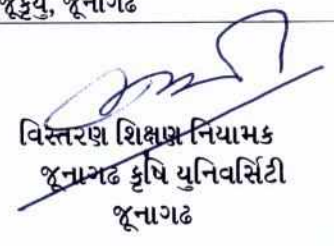 જૂકૃયુ, જૂનાગઢ
વિસ્તરણ શિક્ષણ નિયામક
જૂનાગઢ કૃષિ યુનિવર્સિટી
જૂનાગઢ